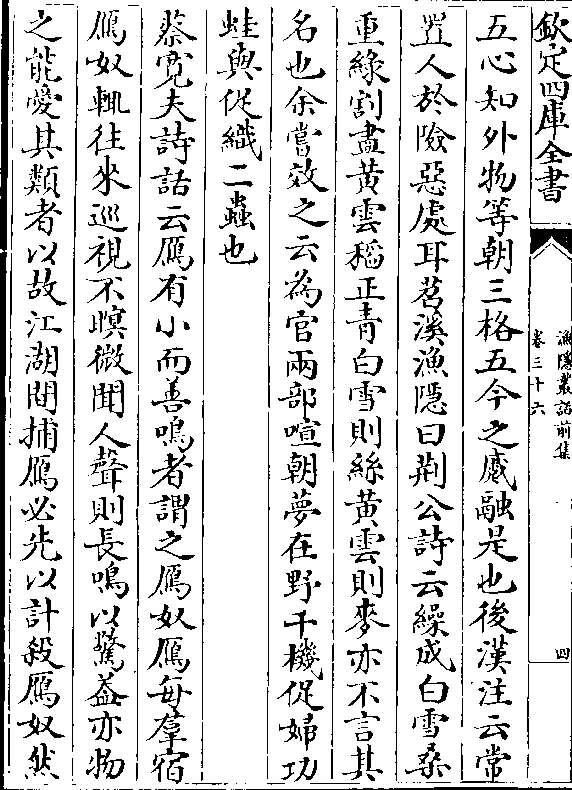 欽定四庫全書
漁隱叢話前集
卷三十六
四
五心知外物等朝三格五今之蹙融是也後漢注云常
置人於險惡處耳苕溪漁隱曰荆公詩云繰成白雪桑
重綠割盡黄雲稻正青白雪則絲黄雲則麥亦不言其
名也余嘗效之云為官兩部喧朝夢在野千機促婦功
蛙與促織二蟲也
蔡寛夫詩話云鴈有小而善鳴者謂之鴈奴鴈每羣宿
鴈奴輒往來巡視不瞑微聞人聲則長鳴以驚葢亦物
之能愛其類者以故江湖間捕鴈必先以計殺鴈奴然